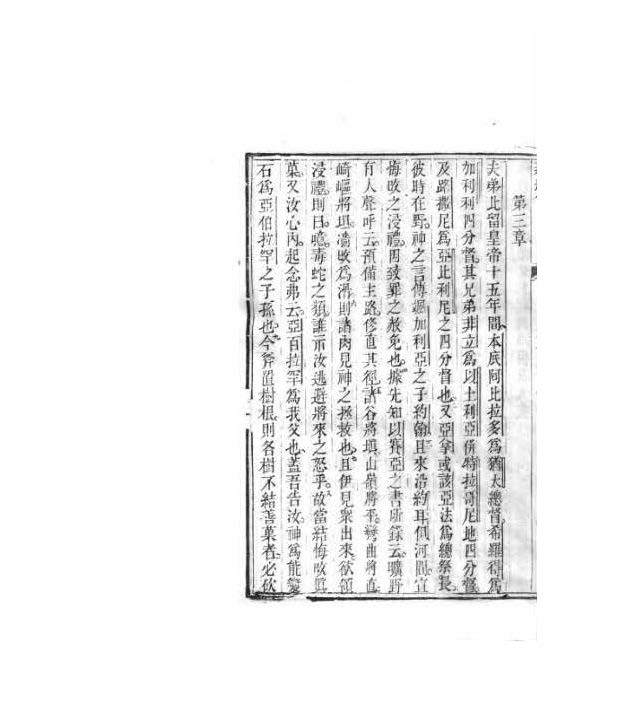 第三章
夫弟比畱皇帝十五年間、本底阿比拉多為猶太總督。希羅得為
加利利四分督。其兄弟非立為以土利亞併特拉哥尼地四分督。
及路撒尼為亞比利尼之四分督也。又亞拿或該亞法為總祭長。
彼時在野。神之言傳撒加利亞之子約翰且來沿約耳但河間。宣
悔改之浸禮。因致罪之赦免也。據先知以賽亞之書所錄云。曠野
有人聲呼云。預備主路修直其徑。諸谷將填。山嶺將平。彎曲將直。
崎嶇將坦。墻改為滑。則諸肉見神之拯救也。且伊見眾出來。欲領
浸禮。則曰。噫。毒蛇之類。誰示汝逃避將來之怒乎。故當結悔改眞
菓。又汝心內。起念弗云。亞百拉罕為我父也。蓋吾告汝。神為能變
石為亞伯拉罕之子孫也。今斧置樹根。則各樹不結善菓者。必砍